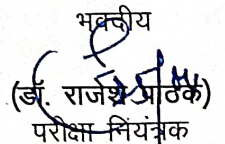 भवदीय
(डॉ. राजेश पाठक)
परीक्षा नियंत्रक